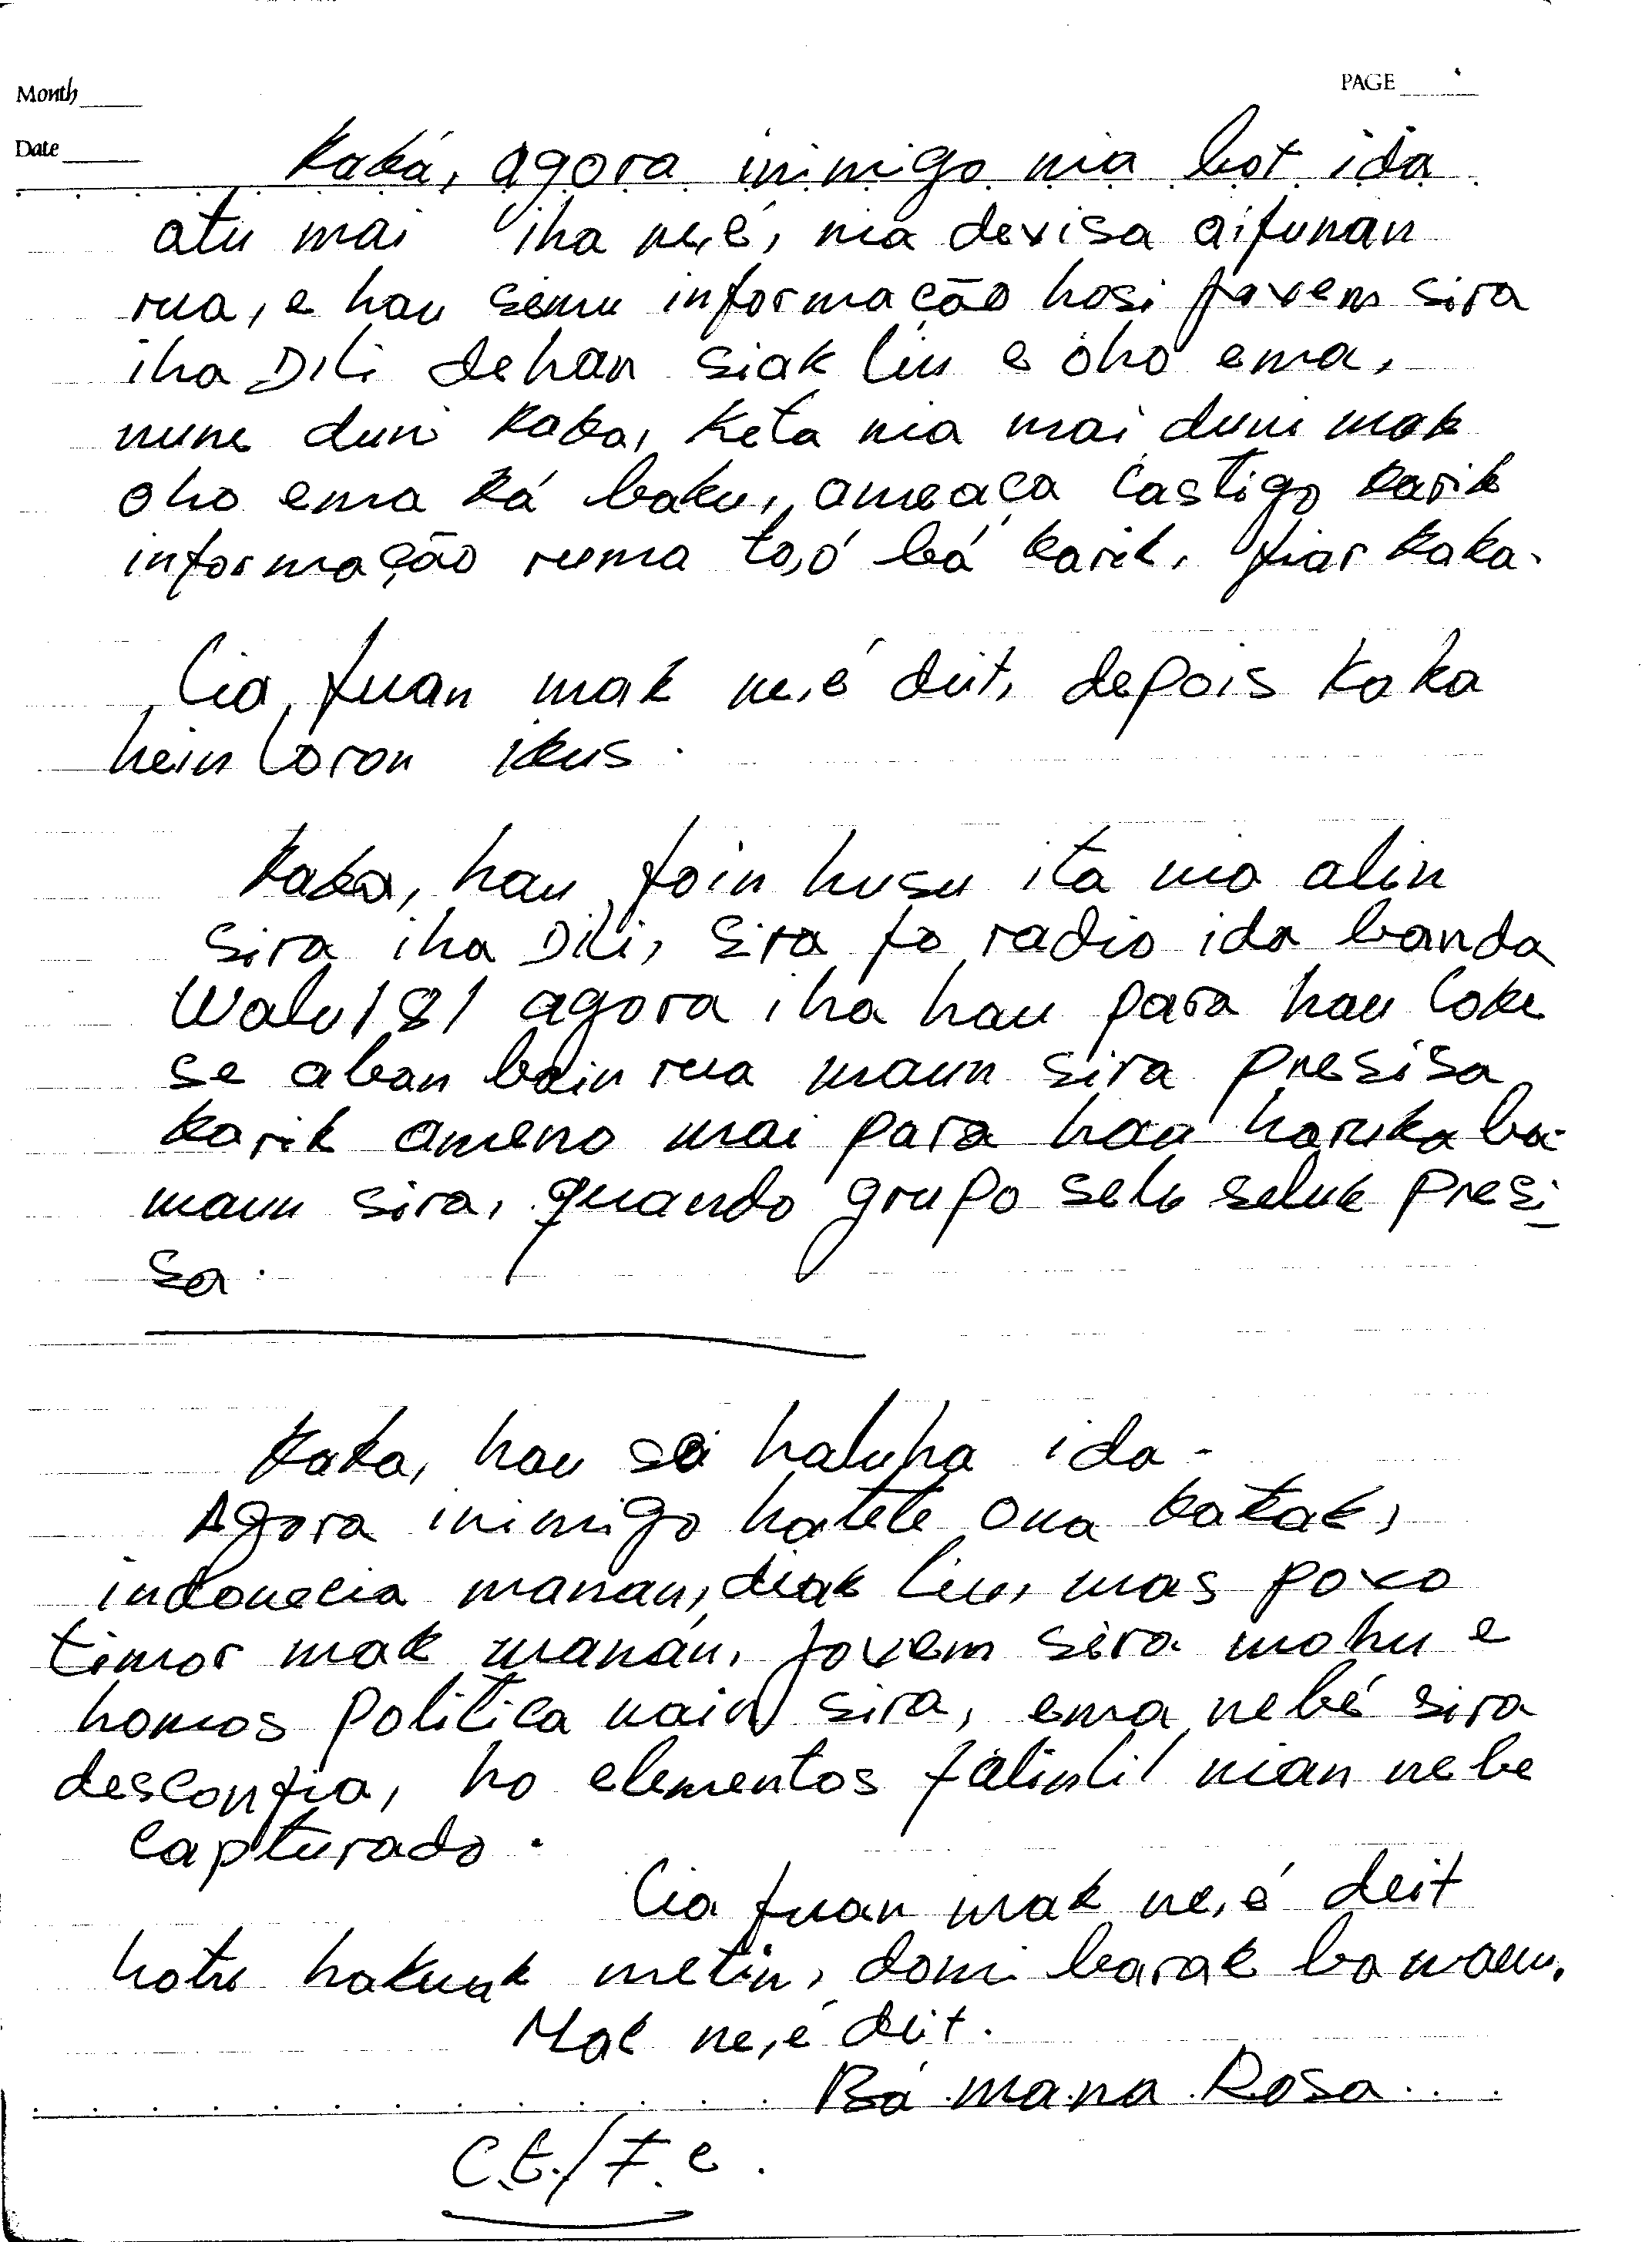 Month
PAGE
Date
Kaká, agora inimigo nia bot ida
atu mai iha ne,é, nia devisa aifunan
rua, e hau simu informação hosi jovem sira
iha Dili dehan siak liu e oho ema,
nune duni Kaka, Keta nia mai duni mak
oho ema ká baku, ameaça castigo karik
informação ruma to,o bá karik, fiar Kaka.
Lia fuan mak ne,é diit, depois Kaka
hein loron ikus.
Kaka, hau foin husu ita nia alin
sira iha Dili, sira fo radio ida banda
Walu/8/ agora iha hau para hau loke
se aban bain rua maun sira presisa
karik ameno mai para hau haruka ba
maun sira, quando grupo selu seluk presi
sa.
Kaka, hau sei haluha ida.
Agora inimigo hatete ona katak,
indonecia manan, diak liu, mas povo
timor mak manán, jovem sira mohu e
homos politica nain sira, ema nebé sira
desconfia, ho elementos falintil nian nebe
capturado.
Lia fuan mak ne,é deit
hotu hakuak metin, domi barak ba maun.
Mak ne,é diit.
Bá mana Rosa...
C.E./F.C.